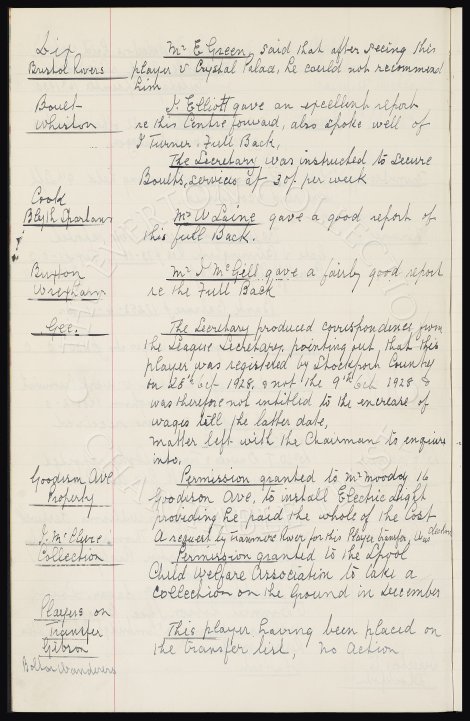 Dix
Bristol Rovers
Mr E Green, said that after seeing this
player v Crystal Palad, he could not recommend
him
Bouet
Whiston
J. Elliott gave an excellent report
re this Centre forward, also spoke well of
J Turner. Full Back.
The Secretary was instructed to secure
services of 30/- per week
Cook
Blyth Spartans
Mr W Laine gave a good report of
this full Back.
Buxton
Wrexham
Mr J McGill gave a fairly good report
re the Full Back
Gee.
The Secretary produced correspondence from
the League Secretary, pointing out, that this
player was registered by Stockport County
on 25th Oct 1928, & not the 9th Oct 1928 &
was therefore not entitled to the encrease of
wages till the latter date,
matter left with the Chairman to enquire
into.
Goodison Ave
Property
Permission granted to Mr Moody 16
Goodison Ave, to install Electric Light
providing he paid the whole of the Cost
J. McClure.
A request by Tranmere Rover for this Player transfer, was
Collection
Permission granted to the L'pool
Child Welfare Association to take a
Collection on the Ground in December
Players on
Transfer
Gibson
Bolton Wanderers
This player having been placed on
the transfer list, no Action